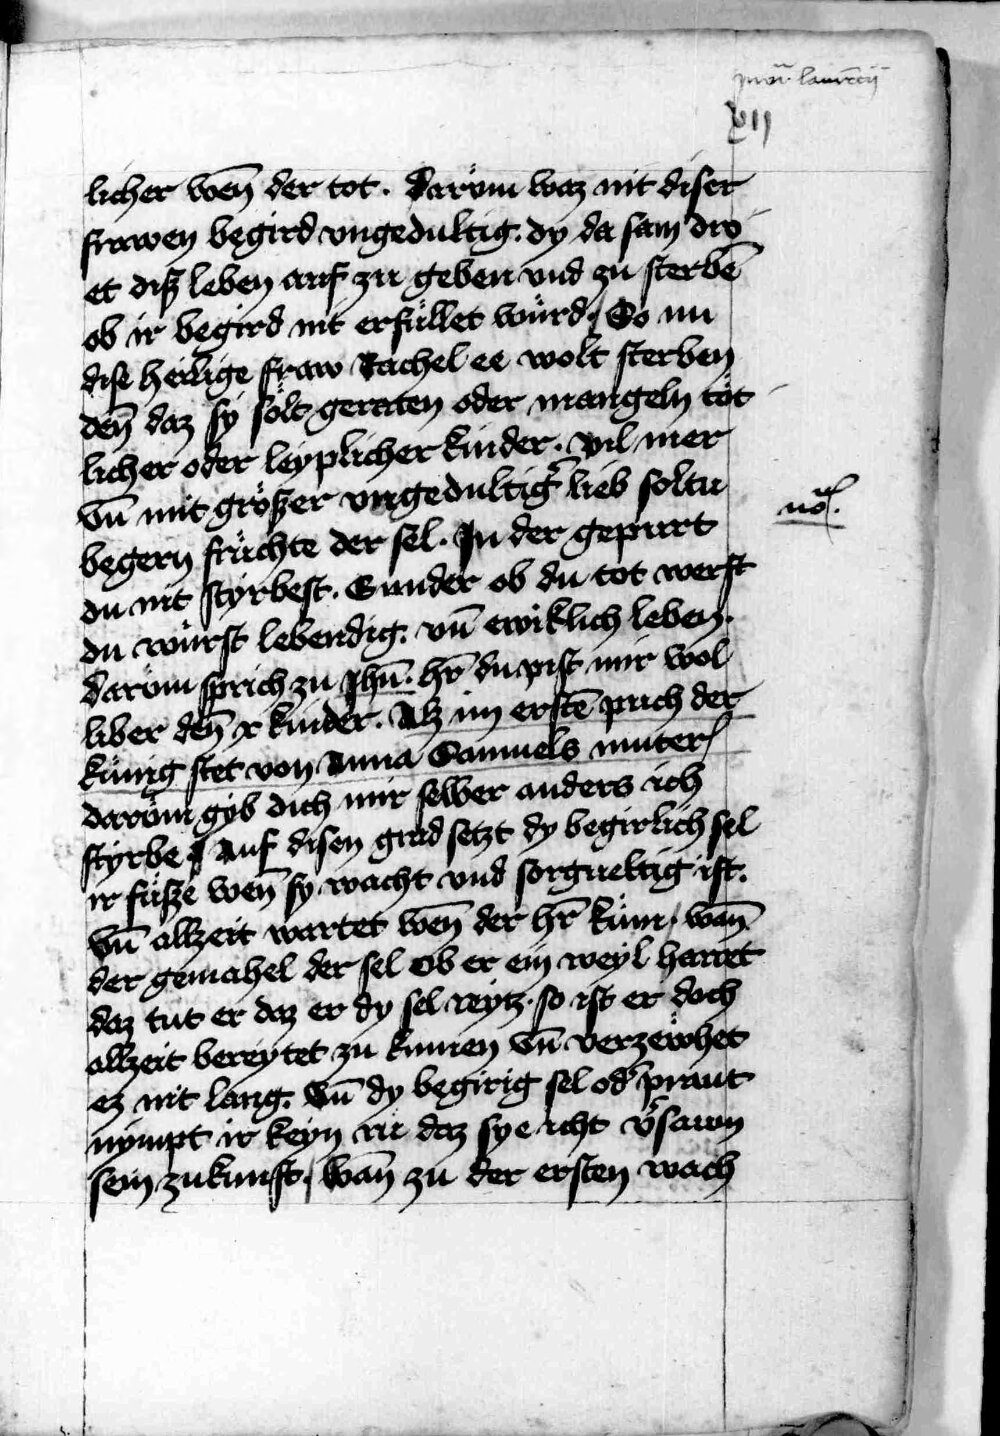 xij
licher wen̄ der tot. Darům waz nit diser
frawen begird vngedultig. dy da sam dro
et diß leben auf zu geben vnd zu sterbē
ob ir begird nit erfüllet würd / So nu
dise heilige fraw Rachel ee wolt sterben
den̄ daz sy sölt geraten oder mangeln töt
licher oder leyplicher kinder. vil mer
vn̄ mit größer vngedultig̃ lieb soltu
nō.
begern früchte der sel. In der gepurt
du nit styrbest. Sunder ob du tot werst
du würst lebendig. vn̄ ewiklich leben.
Darům sprich zu Jhū. hr̄ du pist mir wol
liber den̄ x kinder. Alz im erstē puch der
künig stet von Anna Samuels muter /
darům gyb dich mir selber anders ich
styrbe / Auf disen grad setzt dy begirlich sel
ir füße wen̄ sy wacht vnd sorgueltig ist.
vn̄ allzeit wartet wen̄ der hr̄ kům / wan̄
der gemahel der sel ob er ein weyl harret
daz tut er daz er dy sel reytz. so ist er doch
allzeit bereytet zu kumen vn̄ verzewhet
ez nit lang. vn̄ dy begirig sel od̾ praut
nympt ir keyn ru daz sye icht v̾sawm
sein zukunft / wan̄ zu der ersten wach